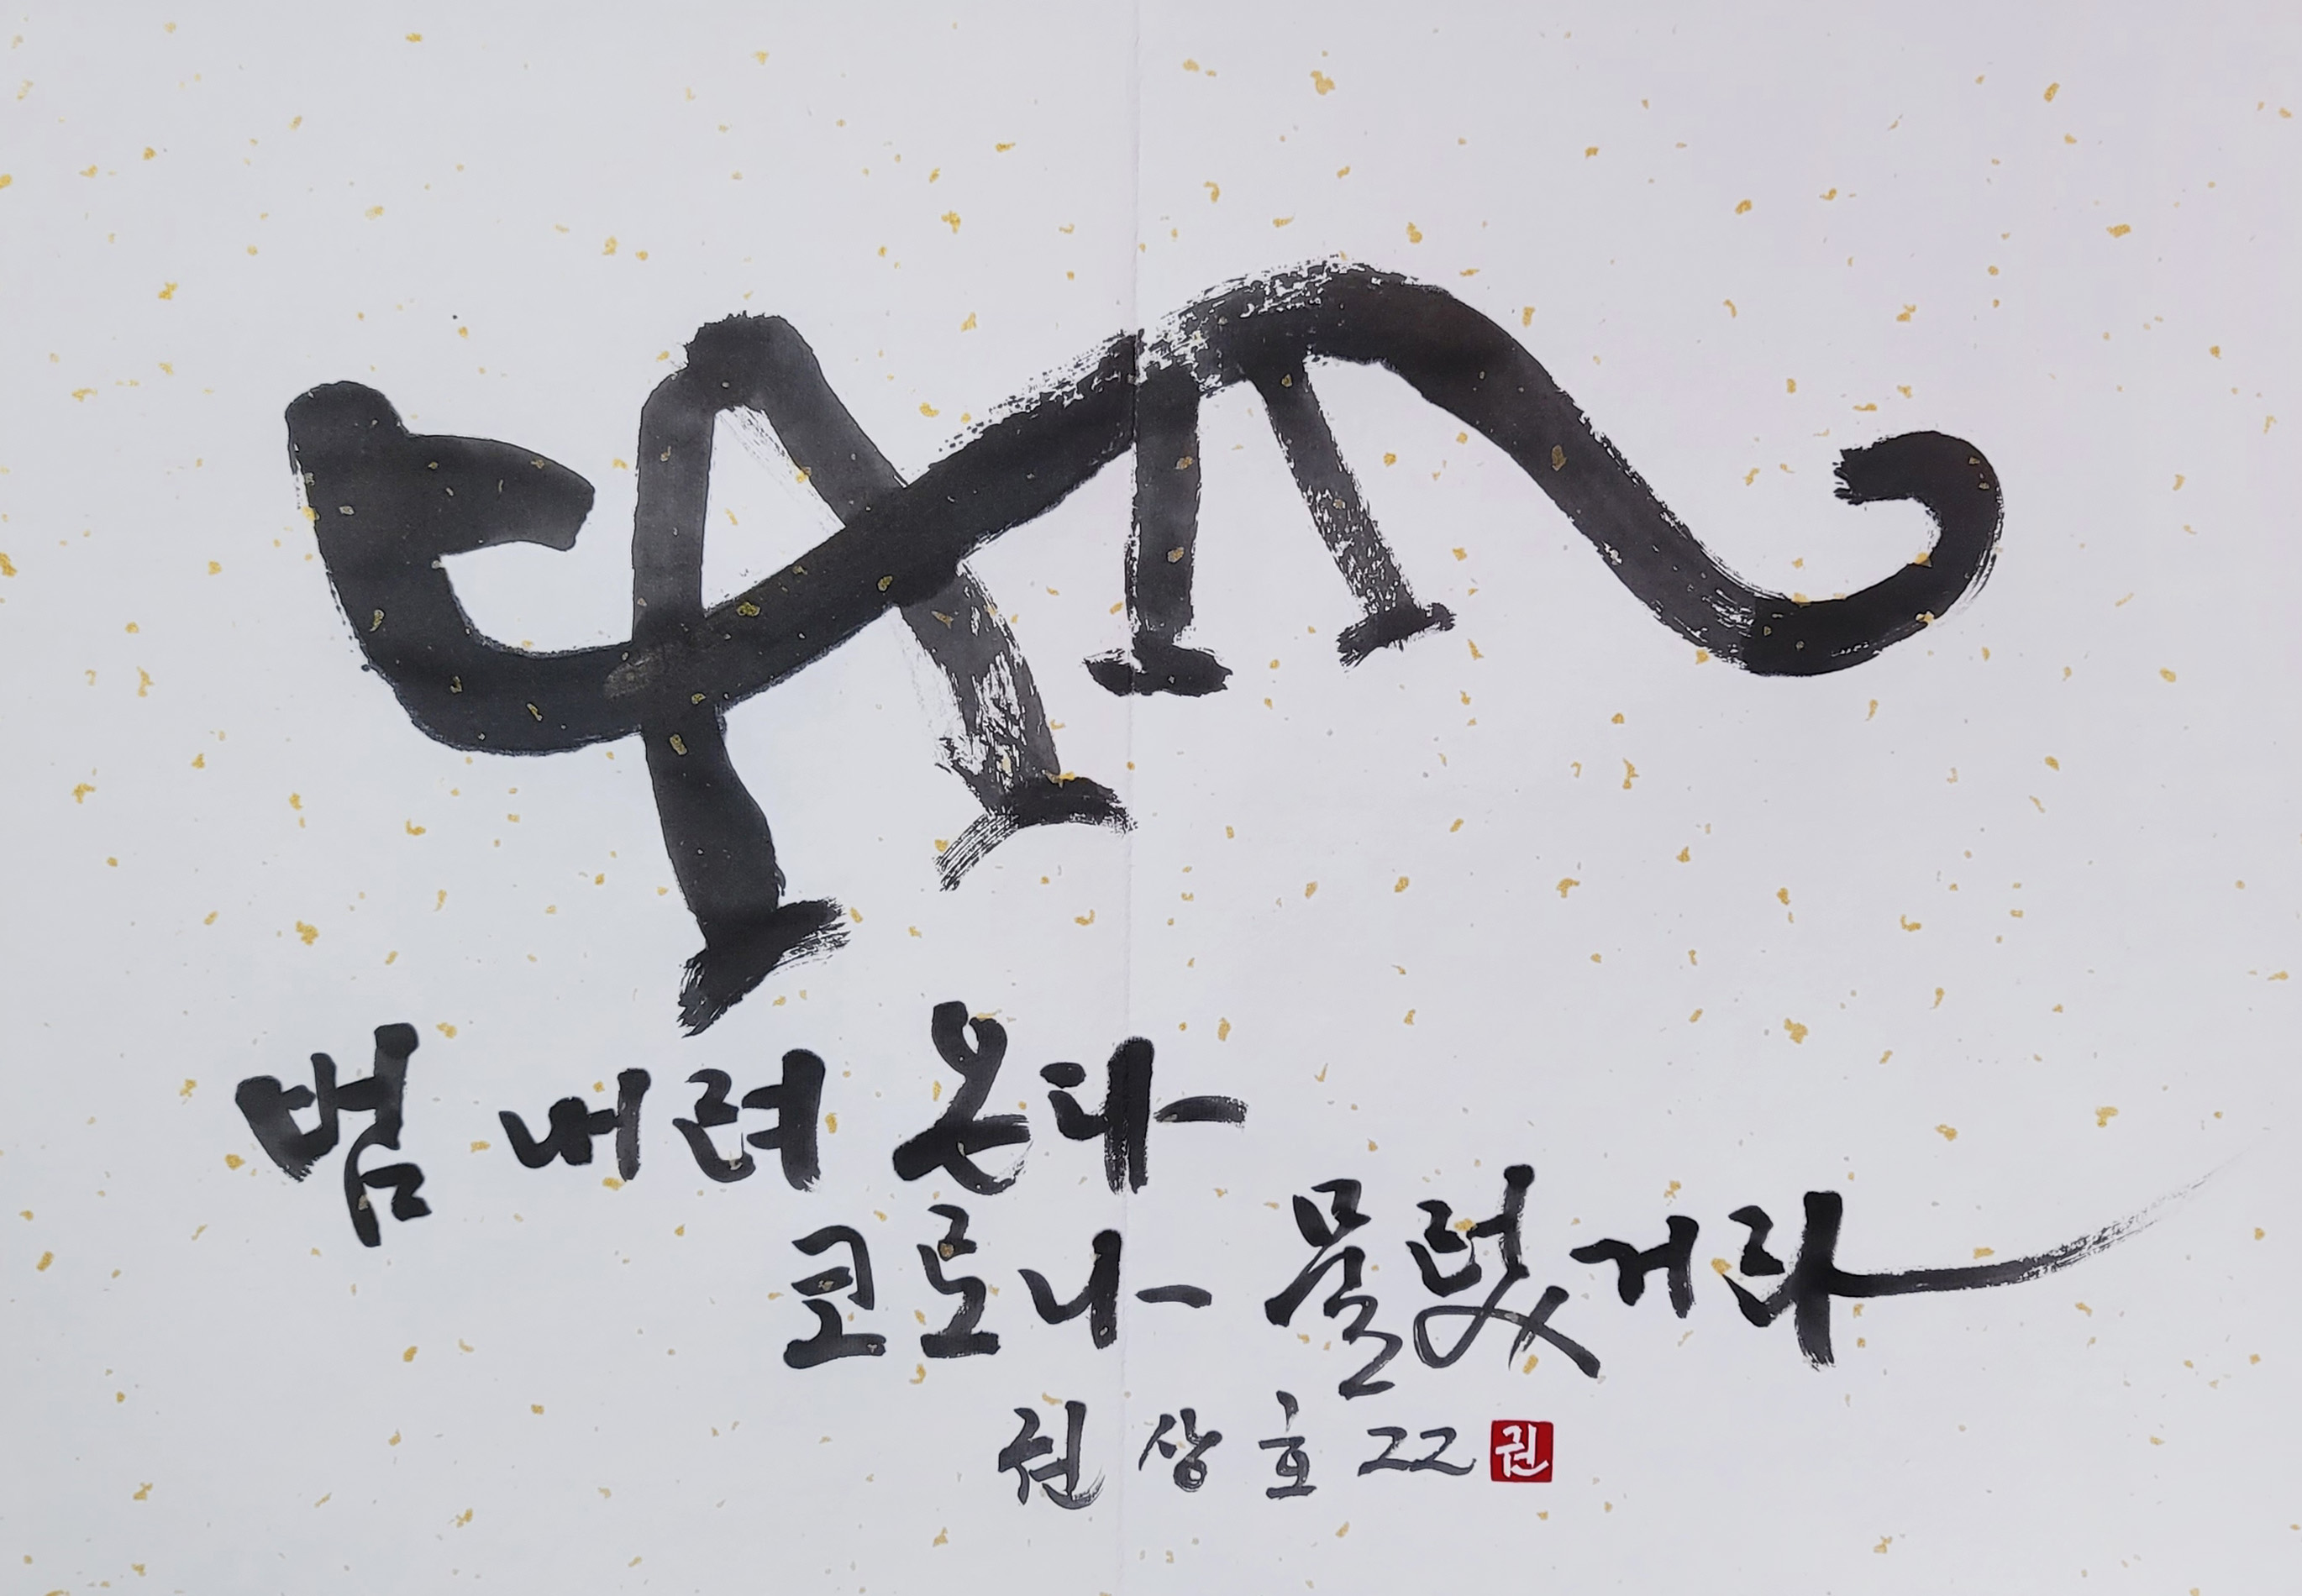 범 내려 온다
코로나 물렀거라
권상호 22 권